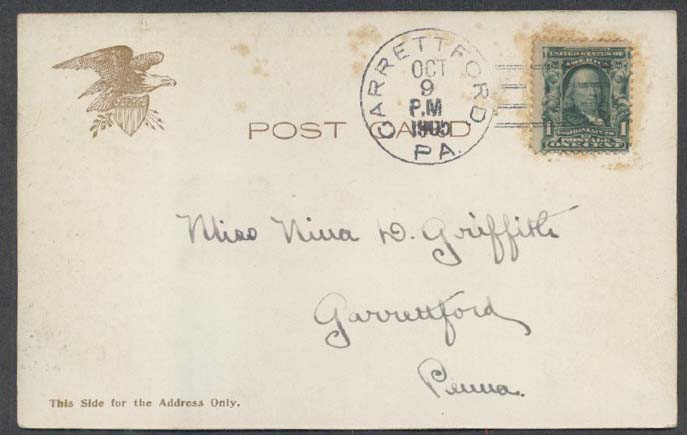 GARRETTFORD
OCT
9
P.M
1905
PA.
UNITED STATES OF
AMERICA
1 FRANKLIN 1
POSTAGE
ONE CENT
POST CARD
Miss Nina D. Griffith
Garrettford
Penna.
This Side for the Address Only.